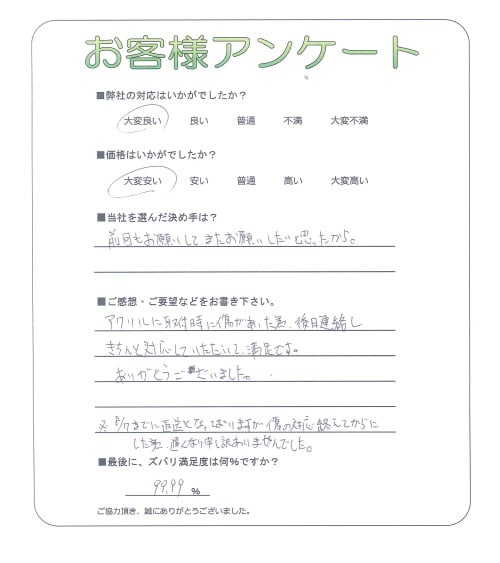 お客様アンケート
■弊社の対応はいかがでしたか？
大変良い 良い 普通 不満 大変不満
■価格はいかがでしたか？
大変安い 安い 普通 高い 大変高い
■当社を選んだ決め手は？
前回もお願いしてまたお願いしたいと思ったから。
■ご感想・ご要望などをお書き下さい。
アクリルに取付時に傷があった為、後日連絡し
きちんと対応していただいて、満足です。
ありがとうございました。
※ 8/17までに返送となっておりますが傷の対応終えてからに
した為、遅くなり申し訳ありませんでした。
■最後に、ズバリ満足度は何％ですか？
99.99 ％
ご協力頂き、誠にありがとうございました。